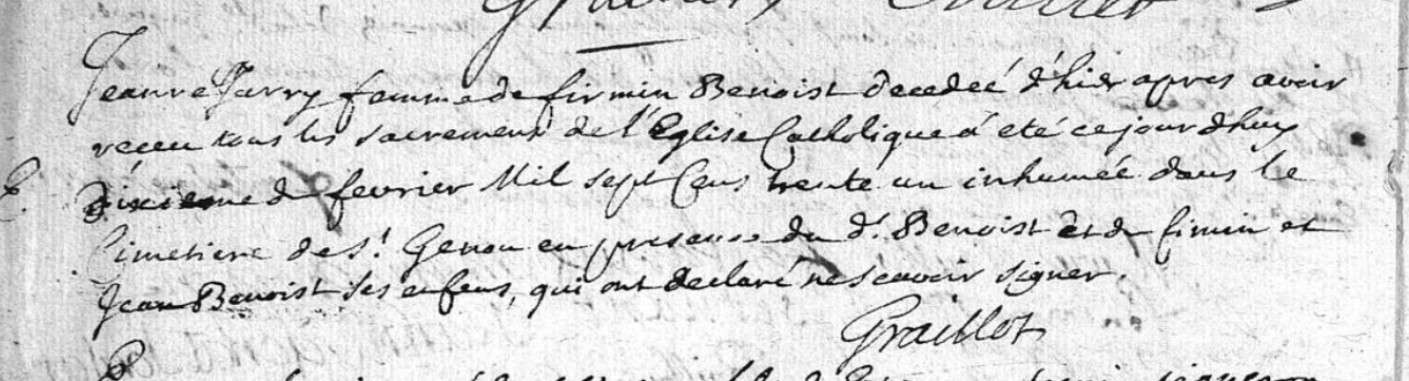 Jeanne Jarry femme de firmin Benoist decedeé d'hier apres avoir
receu tous les sacremens de l'Eglise Catholique a eté ce jourdhuy
E. dixieme de fevrier Mil sept Cens trente un inhumeé dans le
Cimetiere de St. Genou en presence du dt. Benoist et de firmin et
Jean Benoist ses enfens, qui ont declaré ne scavoir signer.
Graillot